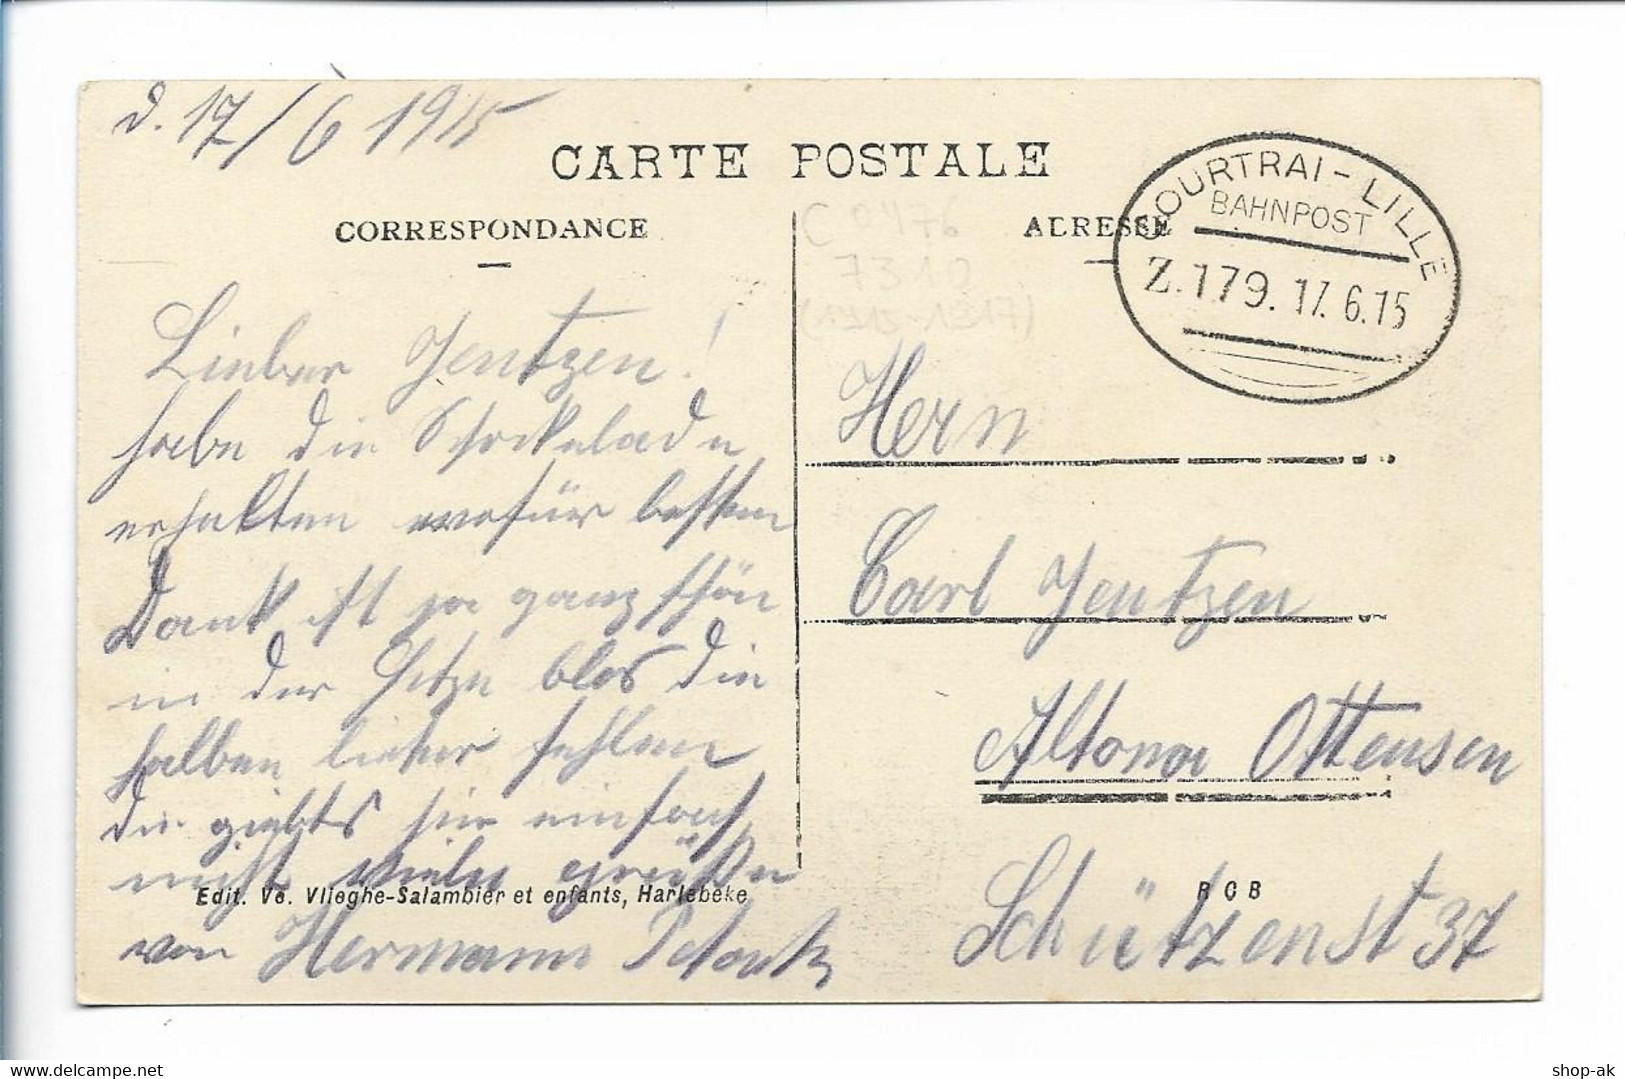 d. 17/6 1915
CARTE POSTALE
CORRESPONDANCE
ADRESSE
COURTRAI - LILLE
BAHNPOST
Z.179. 17.6.15
C 0476
7310
(1915-1917)
Lieber Jentzen!
habe die Schokelade
erhalten wofür besten
Dank ist ja ganz schön
in der Hitze blos die
halben lieber fehlen
die giebts hier einfach
nicht viele grüße
von Hermann
Hern
Carl Jentzen
Altona Ottensen
Schützenst 37
Edit. Ve. Vlieghe-Salambier et enfants, Harlebeke
R C B
shop-ak